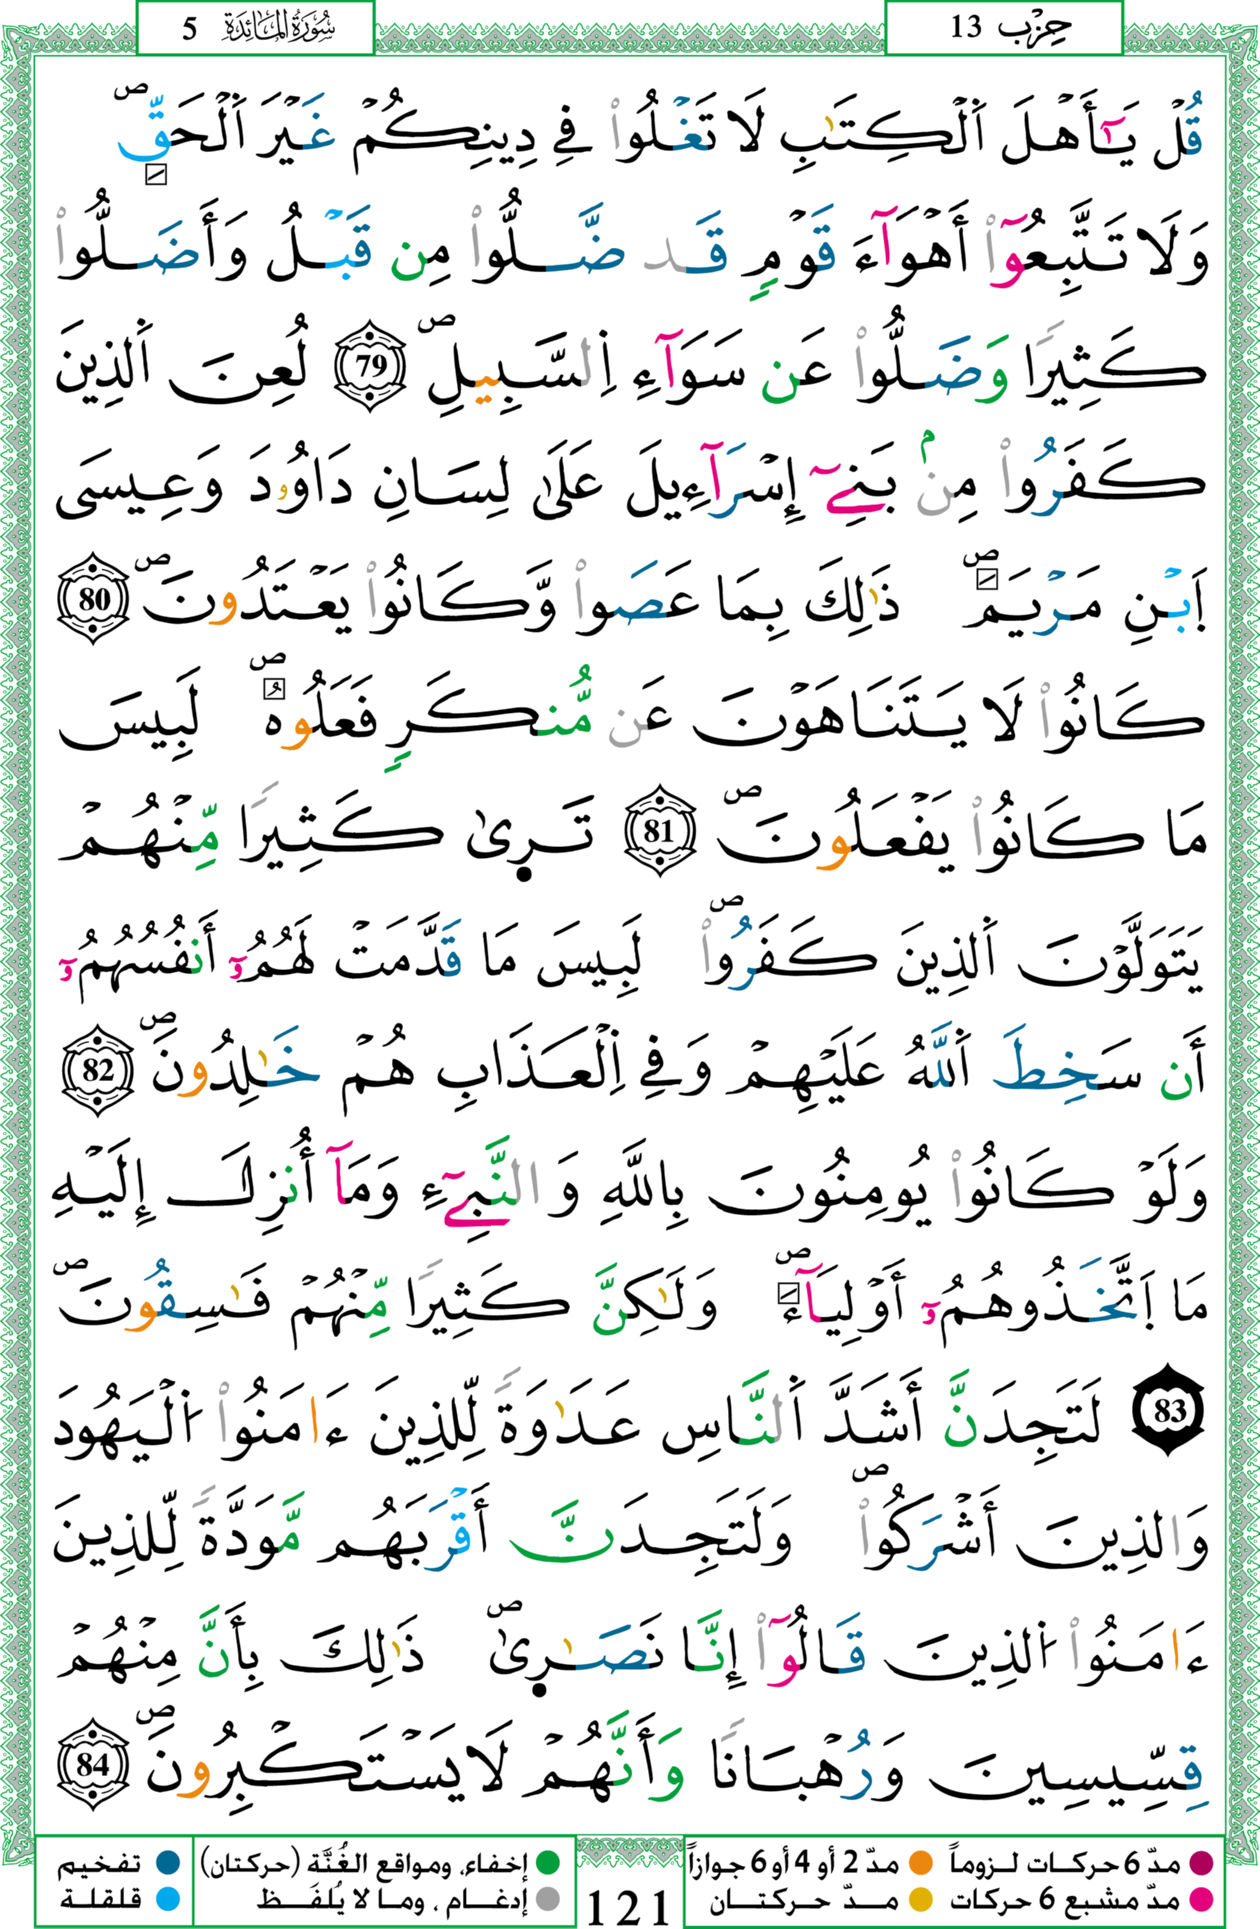 حِزْب 13
سُورَةُ المَائِدَة 5
قُلْ يَٰٓأَهْلَ اَ۬لْكِتَٰبِ لَا تَغْلُواْ فِے دِينِكُمْ غَيْرَ اَ۬لْحَقِّۖ
وَلَا تَتَّبِعُوٓاْ أَهْوَآءَ قَوْمٖ قَد ضَّلُّواْ مِن قَبْلُ وَأَضَلُّواْ
كَثِيراٗ وَضَلُّواْ عَن سَوَآءِ اِ۬لسَّبِيلِۖ 79 لُعِنَ اَ۬لذِينَ
كَفَرُواْ مِنۢ بَنِےٓ إِسْرَآءِيلَ عَلَىٰ لِسَانِ دَاوُۥدَ وَعِيسَى
اَ۪بْنِ مَرْيَمَۖ ذَٰلِكَ بِمَا عَصَواْ وَّكَانُواْ يَعْتَدُونَۖ 80
كَانُواْ لَا يَتَنَاهَوْنَ عَن مُّنكَرٖ فَعَلُوهُۖ لَبِيسَ
مَا كَانُواْ يَفْعَلُونَۖ 81 تَر۪ىٰ كَثِيراٗ مِّنْهُمْ
يَتَوَلَّوْنَ اَ۬لذِينَ كَفَرُواْۖ لَبِيسَ مَا قَدَّمَتْ لَهُمُۥٓ أَنفُسُهُمُۥٓ
أَن سَخِطَ اَ۬للَّهُ عَلَيْهِمْ وَفِے اِ۬لْعَذَابِ هُمْ خَٰلِدُونَۖ 82
وَلَوْ كَانُواْ يُومِنُونَ بِاللَّهِ وَالنَّبِےٓءِ وَمَآ أُنزِلَ إِلَيْهِ
مَا اَ۪تَّخَذُوهُمُۥٓ أَوْلِيَآءَۖ وَلَٰكِنَّ كَثِيراٗ مِّنْهُمْ فَٰسِقُونَۖ
83 لَتَجِدَنَّ أَشَدَّ اَ۬لنَّاسِ عَدَٰوَةٗ لِّلذِينَ ءَامَنُواْ اُ۬لْيَهُودَ
وَالذِينَ أَشْرَكُواْۖ وَلَتَجِدَنَّ أَقْرَبَهُم مَّوَدَّةٗ لِّلذِينَ
ءَامَنُواْ اُ۬لذِينَ قَالُوٓاْ إِنَّا نَصَٰر۪ىٰۖ ذَٰلِكَ بِأَنَّ مِنْهُمْ
قِسِّيسِينَ وَرُهْبَاناٗ وَأَنَّهُمْ لَا يَسْتَكْبِرُونَۖ 84
مدّ 6 حركات لـزوماً مدّ 2 أو 4 أو 6 جوازاً
مدّ مشبع 6 حركات مـدّ حـركتـان
121
إخفاء، ومواقع الغُنَّة (حركتان) تفخيم
إدغـام ، ومـا لا يُلفَـظ قلقلة